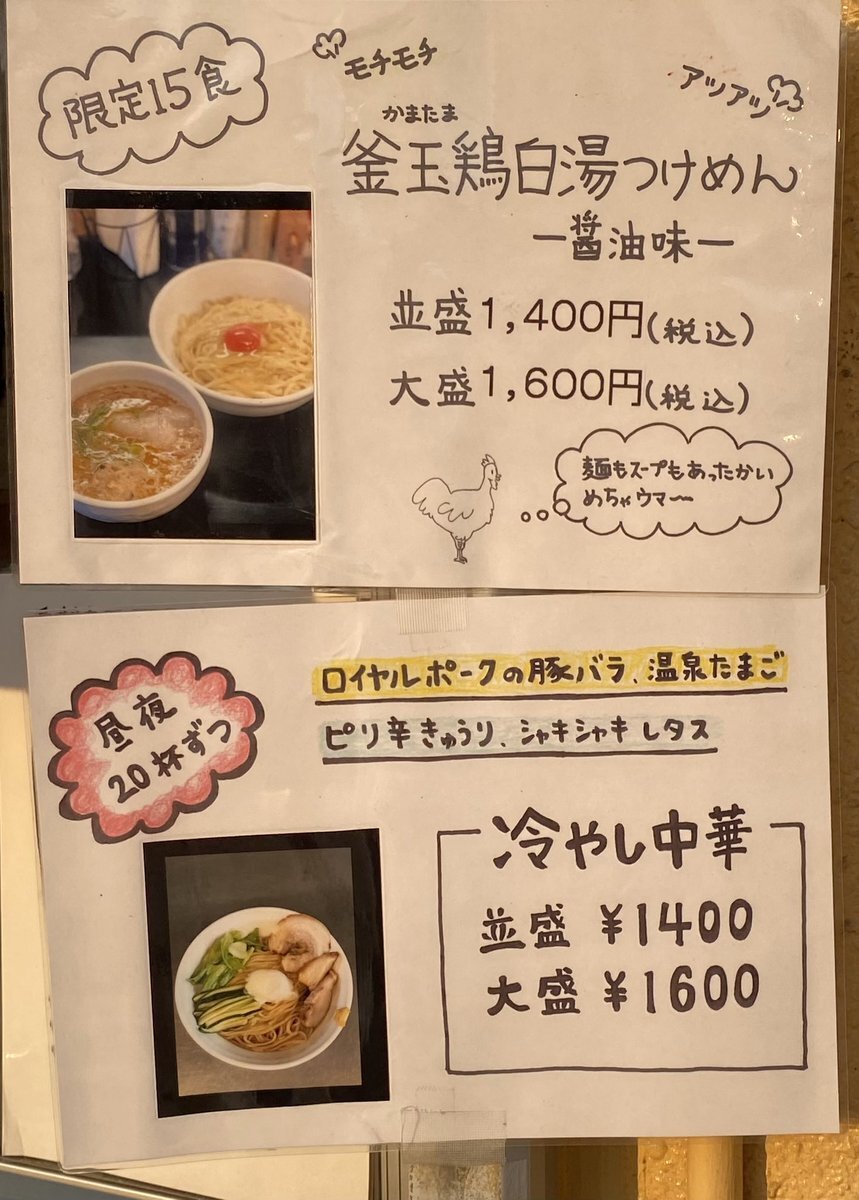 限定15食
モチモチ
アツアツ
かまたま
釜玉鶏白湯つけめん
ー醤油味ー
並盛1,400円(税込)
大盛1,600円(税込)
麺もスープもあったかい
めちゃウマ〜
昼夜
20杯ずつ
ロイヤルポークの豚バラ、温泉たまご
ピリ辛きゅうり、シャキシャキレタス
冷やし中華
並盛 ¥1400
大盛 ¥1600